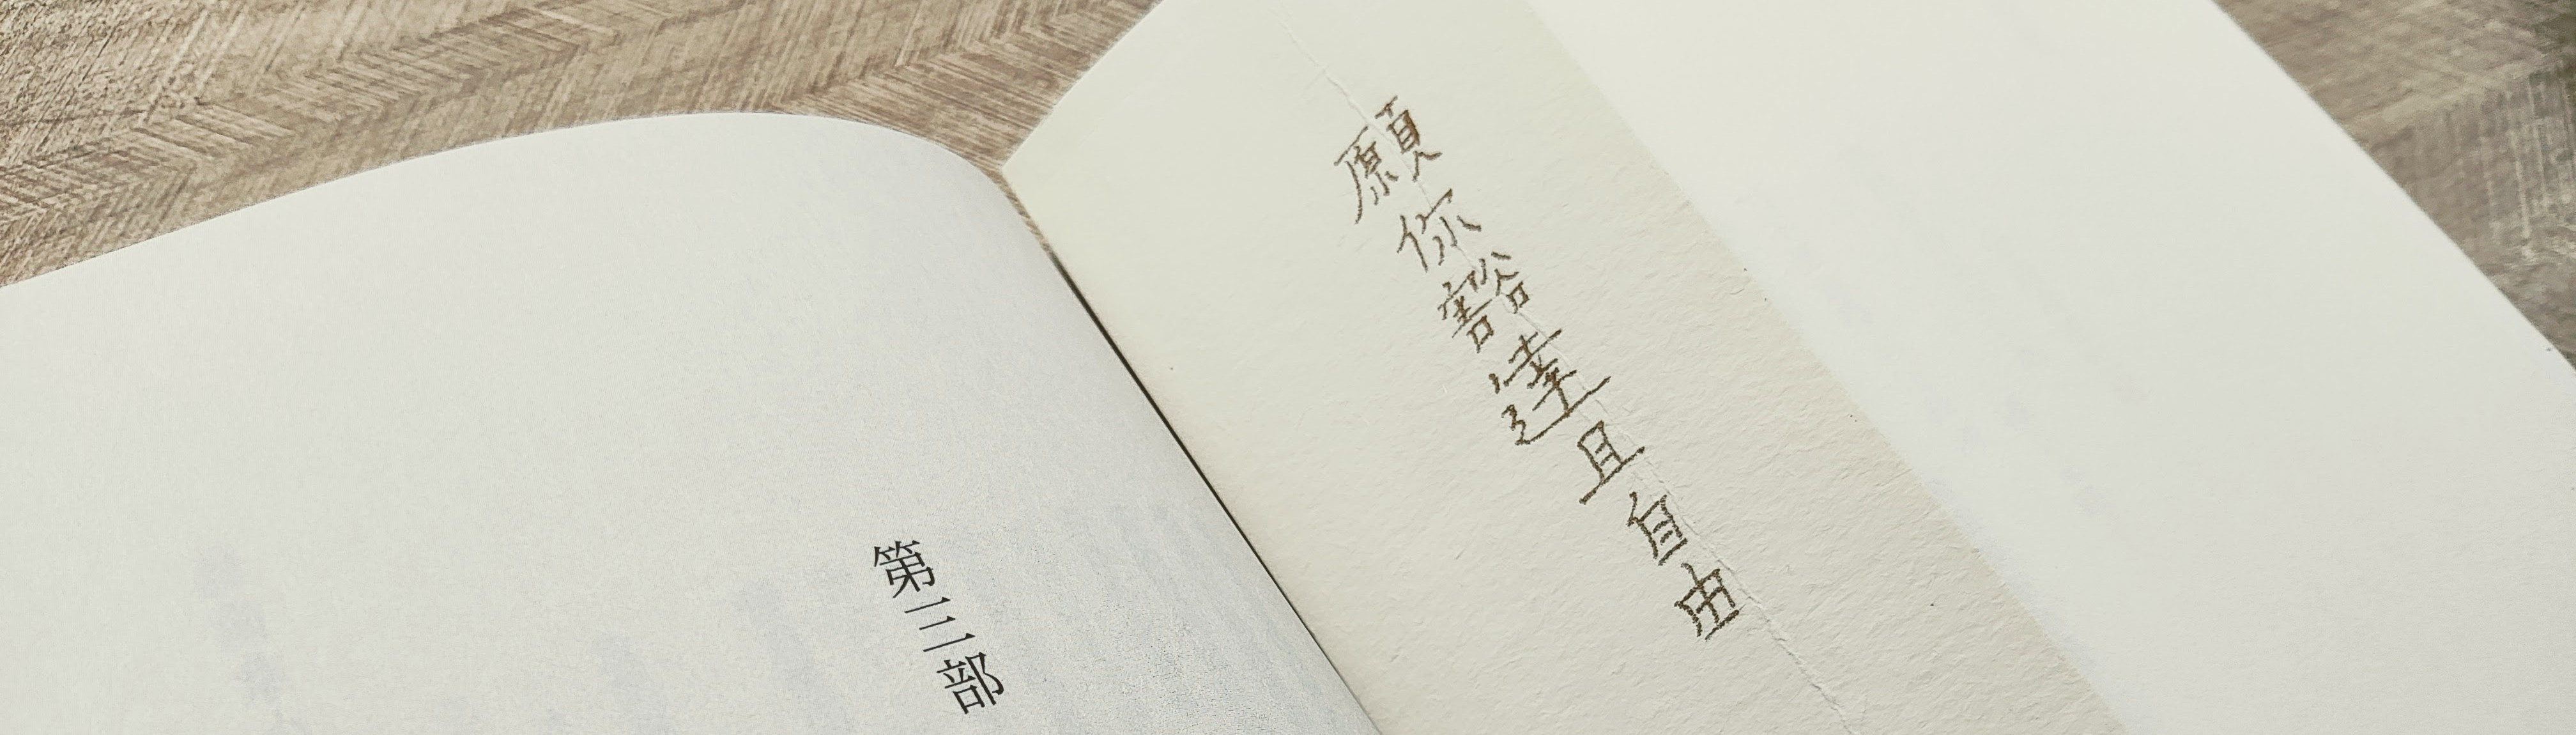 願你豁達且自由
第三部